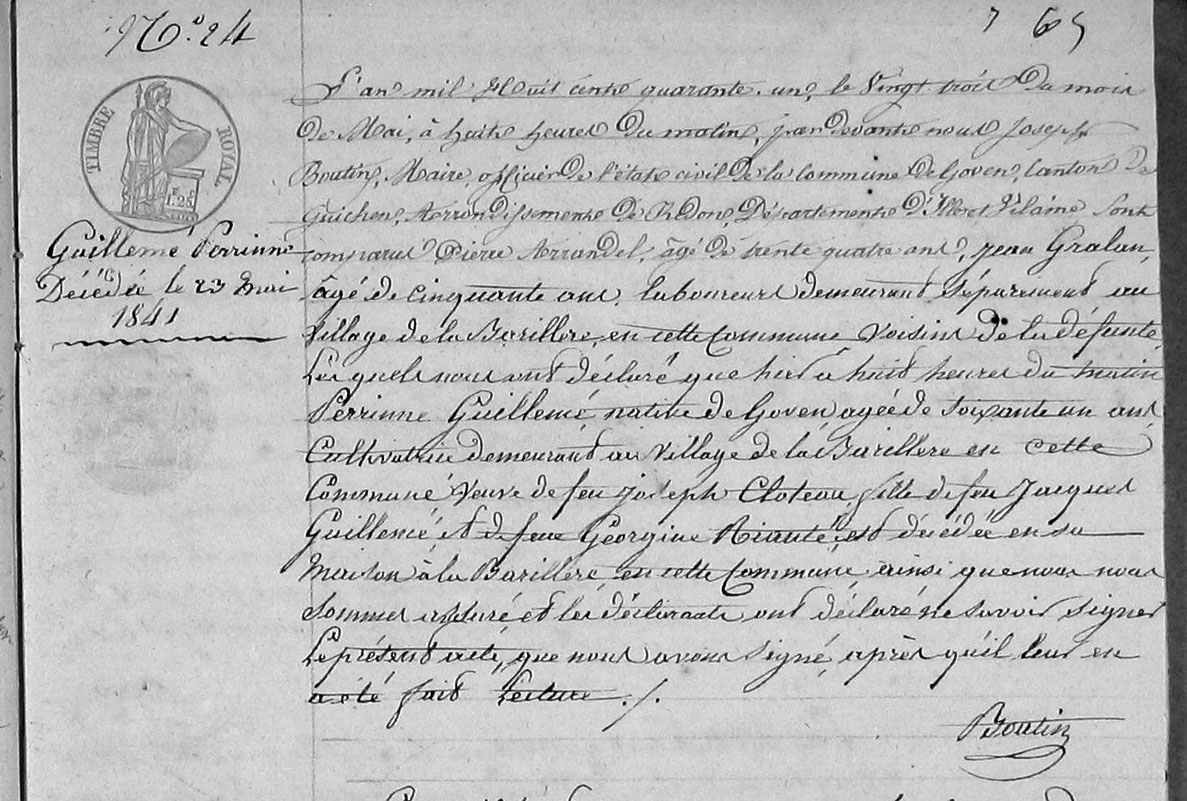 N.° 24
7 65
TIMBRE ROYAL
F.
1.25
Guillemé Perrinne
Décédée le 23 Mai
1841
L'an mil Huit cent quarante-un, le Vingt trois Du mois
De Mai, à huit heures Du matin, par devant nous Joseph
Boutin, Maire, officier De l'état civil De la Commune De Goven, Canton De
Guichen, Arrondissement De Redon, Département D'Ille et Vilaine, sont
comparus Pierre Arrandel, âgé de trente quatre ans, jean Gralan,
âgé de cinquante ans, laboureurs demeurant séparement au
Village de la Barillere, en cette Commune Voisins De la défunte,
Lesquels nous ont déclaré que hier à huit heures du matin
Perrinne Guillemé native de Goven agée de soixante un ans
Cultivatrice demeurant au Village de la Barillere en cette
Commune Veuve de feu joseph Cloteau, fille de feu Jacques
Guillemé, et de feue Georgine Rianté, est décédée en sa
Maison à la Barillere en cette Commune, ainsi que nous nous
Sommes assuré et les déclarants ont déclaré ne savoir signer
Le présent acte, que nous avons signé, après qu'il leur en
a été fait Lecture ./.
Boutin